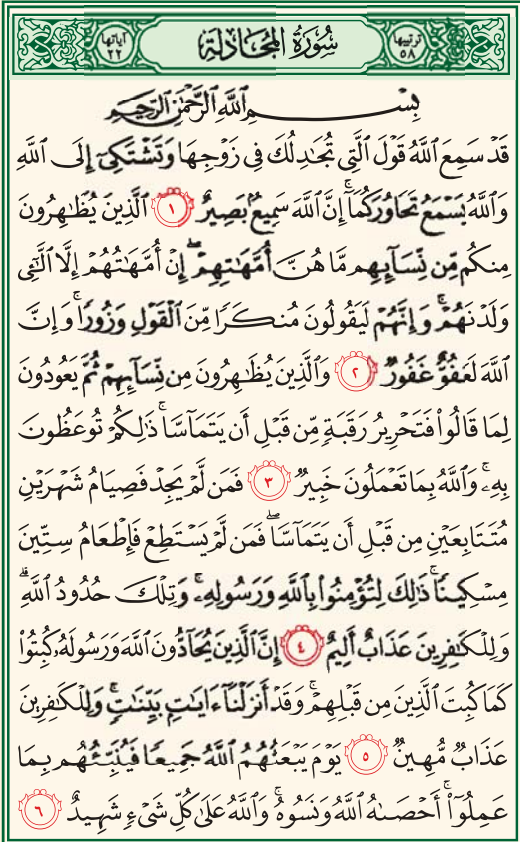 ترتيبها ٥٨ سُورَةُ المُجَادلَة آياتها ٢٢
بِسْمِ ٱللَّهِ ٱلرَّحْمَٰنِ ٱلرَّحِيمِ
قَدْ سَمِعَ ٱللَّهُ قَوْلَ ٱلَّتِي تُجَٰدِلُكَ فِي زَوْجِهَا وَتَشْتَكِيٓ إِلَى ٱللَّهِ
وَٱللَّهُ يَسْمَعُ تَحَاوُرَكُمَآۚ إِنَّ ٱللَّهَ سَمِيعُۢ بَصِيرٌ ١ ٱلَّذِينَ يُظَٰهِرُونَ
مِنكُم مِّن نِّسَآئِهِم مَّا هُنَّ أُمَّهَٰتِهِمْۖ إِنْ أُمَّهَٰتُهُمْ إِلَّا ٱلَّٰٓـِٔي
وَلَدْنَهُمْۚ وَإِنَّهُمْ لَيَقُولُونَ مُنكَرًا مِّنَ ٱلْقَوْلِ وَزُورًاۚ وَإِنَّ
ٱللَّهَ لَعَفُوٌّ غَفُورٌ ٢ وَٱلَّذِينَ يُظَٰهِرُونَ مِن نِّسَآئِهِمْ ثُمَّ يَعُودُونَ
لِمَا قَالُوا۟ فَتَحْرِيرُ رَقَبَةٍ مِّن قَبْلِ أَن يَتَمَآسَّاۚ ذَٰلِكُمْ تُوعَظُونَ
بِهِۦۚ وَٱللَّهُ بِمَا تَعْمَلُونَ خَبِيرٌ ٣ فَمَن لَّمْ يَجِدْ فَصِيَامُ شَهْرَيْنِ
مُتَتَابِعَيْنِ مِن قَبْلِ أَن يَتَمَآسَّاۖ فَمَن لَّمْ يَسْتَطِعْ فَإِطْعَامُ سِتِّينَ
مِسْكِينًاۚ ذَٰلِكَ لِتُؤْمِنُوا۟ بِٱللَّهِ وَرَسُولِهِۦۚ وَتِلْكَ حُدُودُ ٱللَّهِۗ
وَلِلْكَٰفِرِينَ عَذَابٌ أَلِيمٌ ٤ إِنَّ ٱلَّذِينَ يُحَآدُّونَ ٱللَّهَ وَرَسُولَهُۥ كُبِتُوا۟
كَمَا كُبِتَ ٱلَّذِينَ مِن قَبْلِهِمْۚ وَقَدْ أَنزَلْنَآ ءَايَٰتِۭ بَيِّنَٰتٍۚ وَلِلْكَٰفِرِينَ
عَذَابٌ مُّهِينٌ ٥ يَوْمَ يَبْعَثُهُمُ ٱللَّهُ جَمِيعًا فَيُنَبِّئُهُم بِمَا
عَمِلُوٓا۟ۚ أَحْصَىٰهُ ٱللَّهُ وَنَسُوهُۚ وَٱللَّهُ عَلَىٰ كُلِّ شَيْءٍ شَهِيدٌ ٦